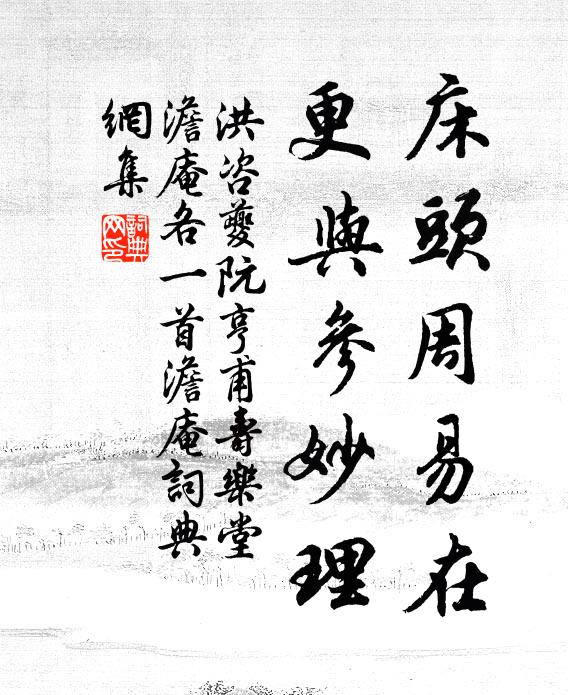 床頭周易在
更與參妙理
洪咨夔阮亨甫壽樂堂
澹庵各一首澹庵詞典
網集
詞典
网印